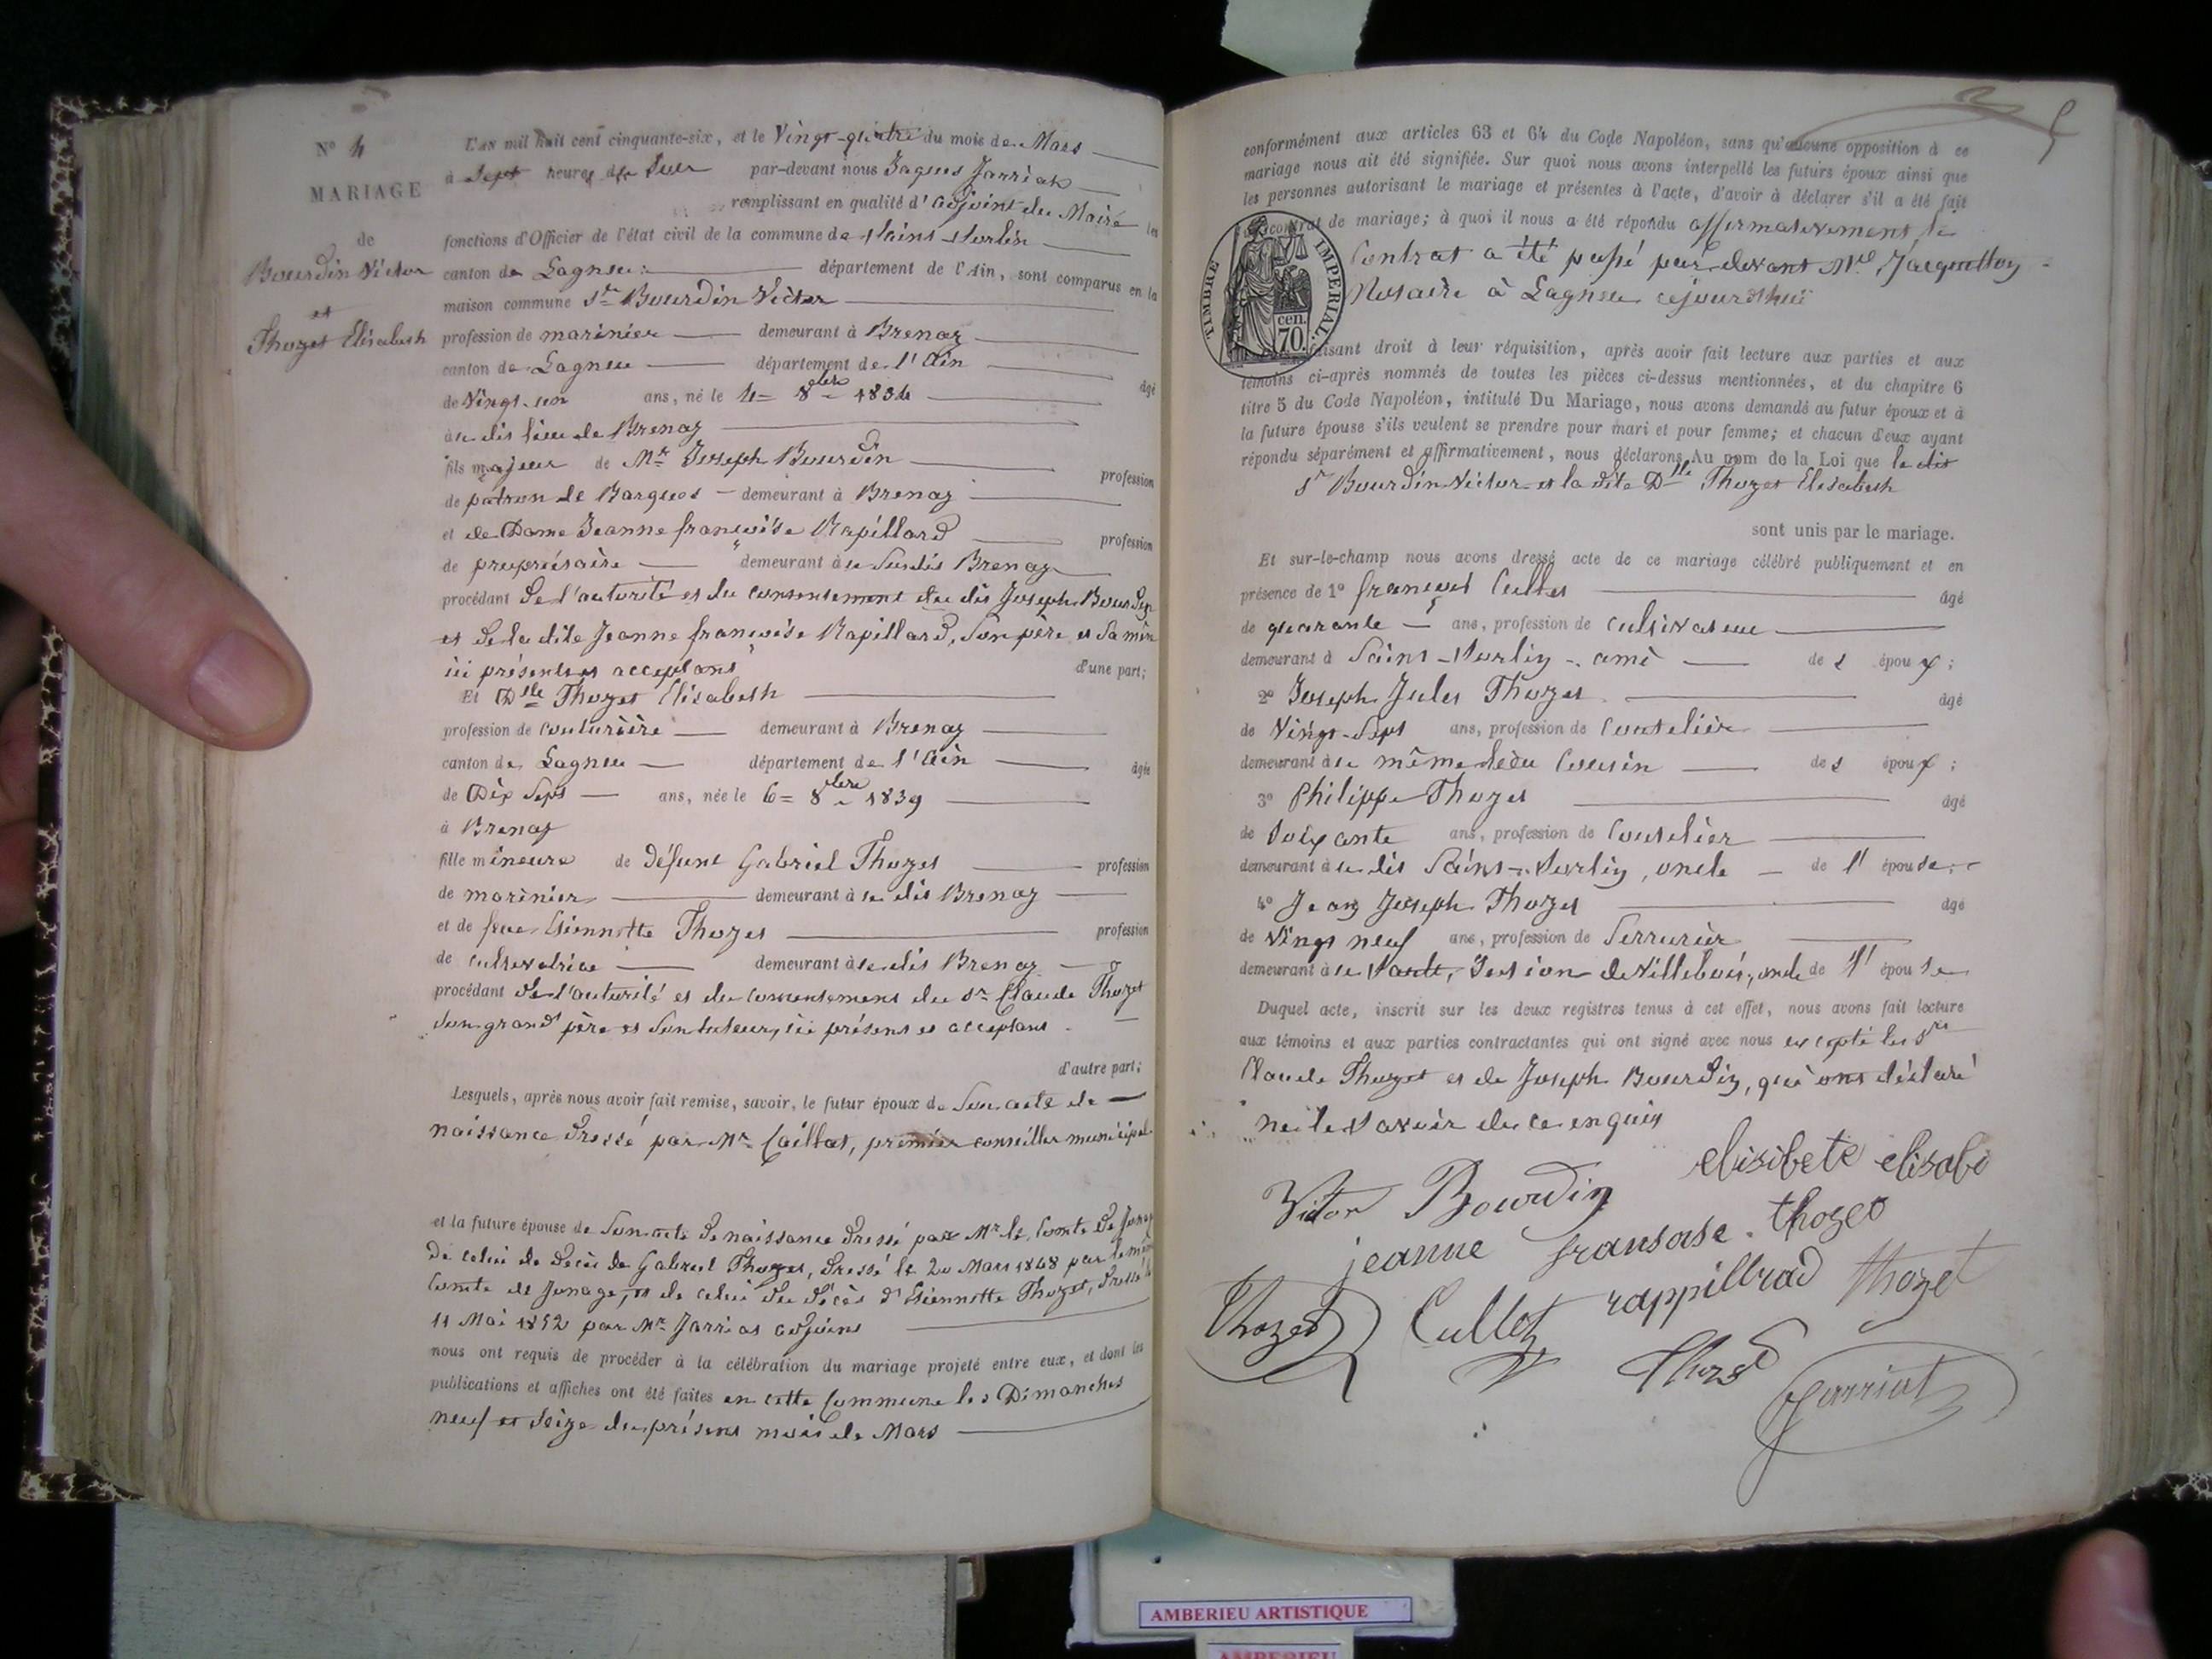 N° 4
MARIAGE
de
Bourdin Victor
et
Thozet Elisabeth
L'an mil huit cent cinquante-six, et le Vingt-quatre du mois de Mars
à Sept heures du Soir par-devant nous Jaques Jarriat
remplissant en qualité d'adjoint du Maire les
fonctions d'Officier de l'état civil de la commune de Saint Sorlin
canton de Lagnieu département de l'Ain, sont comparus en la
maison commune Sr Bourdin Victor
profession de marinier demeurant à Brenaz
canton de Lagnieu département de l'Ain
âgé
de Vingt-un ans, né le 4 = 8bre 1834
à u dit lieu de Brenaz
fils majeur de Mr Joseph Bourdin profession
de patron de Barques demeurant à Brenaz
et de Dame Jeanne françoise Rapillard profession
de propriétaire demeurant à u Susdit Brenaz
procédant de l'autorité et du consentement du dit Joseph Bourdin
et de la dite Jeanne françoise Rapillard, Son père et Sa mère
ici présents et acceptant d'une part;
Et Dlle Thozet Elisabeth
profession de couturière demeurant à Brenaz
canton de Lagnieu département de l'Ain âgée
de Dix Sept ans, née le 6 = 8bre 1839
à Brenaz
fille mineure de défunt Gabriel Thozet profession
de marinier demeurant à u dit Brenaz
et de feue Etiennette Thozet profession
de cultivatrice demeurant à u dit Brenaz
procédant de l'autorité et du consentement du Sr Claude Thozet
Son grand père et Son tuteur, ici présent et acceptant
d'autre part;
Lesquels, après nous avoir fait remise, savoir, le futur époux de Son acte de
naissance Dressé par Mr Caillat, premier conseiller municipal
et la future épouse de Son acte de naissance Dressé par Mr le Comte de Jonage
De celui de Décès de Gabriel Thozet, Dressé le 20 Mars 1848 par le même
Comte de Jonage, et de celui du Décès d'Etiennette Thozet, Dressé le
11 Mai 1852 par Mr Jarriat adjoint
nous ont requis de procéder à la célébration du mariage projeté entre eux, et dont les
publications et affiches ont été faites en cette Commune les Dimanches
neuf et Seize du présent mois de Mars
conformément aux articles 63 et 64 du Code Napoléon, sans qu'aucune opposition à ce
mariage nous ait été signifiée. Sur quoi nous avons interpellé les futurs époux ainsi que
les personnes autorisant le mariage et présentes à l'acte, d'avoir à déclarer s'il a été fait
contrat de mariage; à quoi il nous a été répondu affirmativement, le
Contrat a été passé par devant Me
Notaire à Lagnieu cejourd'hui
TIMBRE IMPERIAL
cen.
70.
faisant droit à leur réquisition, après avoir fait lecture aux parties et aux
témoins ci-après nommés de toutes les pièces ci-dessus mentionnées, et du chapitre 6
titre 5 du Code Napoléon, intitulé Du Mariage, nous avons demandé au futur époux et à
la future épouse s'ils veulent se prendre pour mari et pour femme; et chacun d'eux ayant
répondu séparément et affirmativement, nous déclarons Au nom de la Loi que le dit
Sr Bourdin Victor et la dite Dlle Thozet Elisabeth
sont unis par le mariage.
Et sur-le-champ nous avons dressé acte de ce mariage célébré publiquement et en
présence de 1° françois Cullet âgé
de quarante ans, profession de cultivateur
demeurant à Saint-Sorlin - ami de s époux;
2° Joseph Jules Thozet âgé
de Vingt-Sept ans, profession de Coutelier
demeurant à u même lieu Cousin de s époux;
3° Philippe Thozet âgé
de Soixante ans, profession de Coutelier
demeurant à u dit Saint-Sorlin, oncle de l'épouse;
4° Jean Joseph Thozet âgé
de Vingt neuf ans, profession de Serrurier
demeurant à u Sault, Section de Villebois, oncle de l'épouse
Duquel acte, inscrit sur les deux registres tenus à cet effet, nous avons fait lecture
aux témoins et aux parties contractantes qui ont signé avec nous excepté les Srs
Claude Thozet et de Joseph Bourdin, qui ont déclaré
ne le Savoir de ce enquis
elisibete elisabi
Victor Bourdin
jeanne fransoise thozet
Thozet Cullet rappillrad thozet
Thozet
Jarriat
AMBERIEU ARTISTIQUE
AMBERIEU